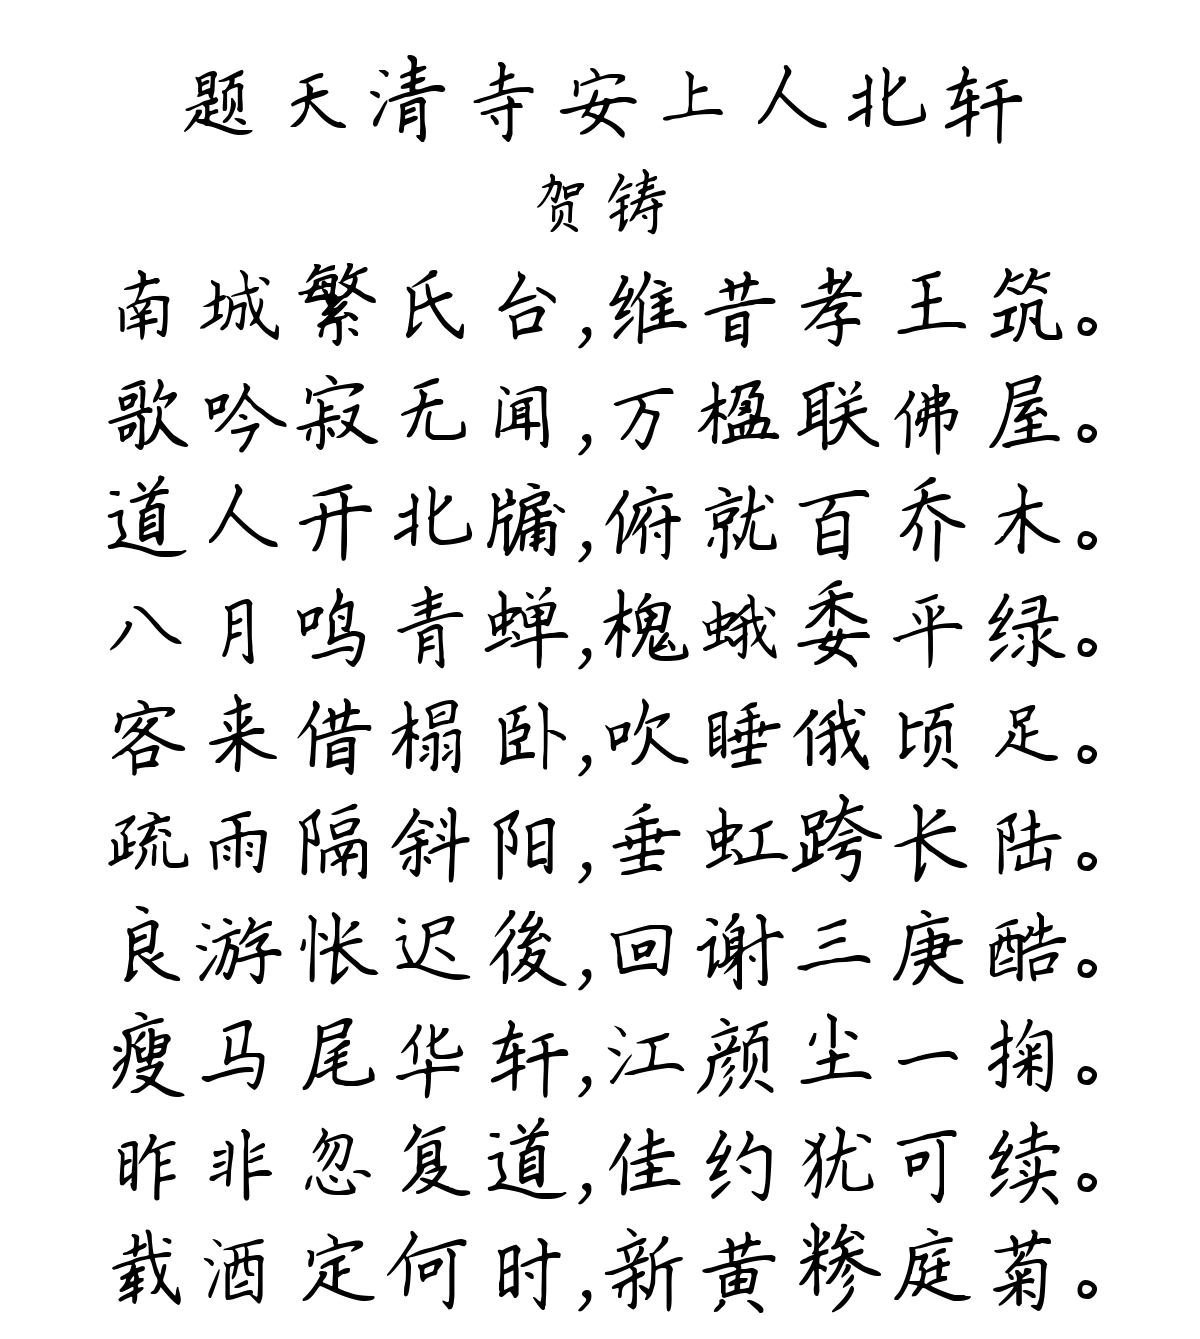 题天清寺安上人北轩
贺铸
南城繁氏台,维昔孝王筑。
歌吟寂无闻,万楹联佛屋。
道人开北牖,俯就百乔木。
八月鸣青蝉,槐蛾委平绿。
客来借榻卧,吹睡俄顷足。
疏雨隔斜阳,垂虹跨长陆。
良游怅迟後,回谢三庚酷。
瘦马尾华轩,江颜尘一掬。
昨非忽复道,佳约犹可续。
载酒定何时,新黄糁庭菊。